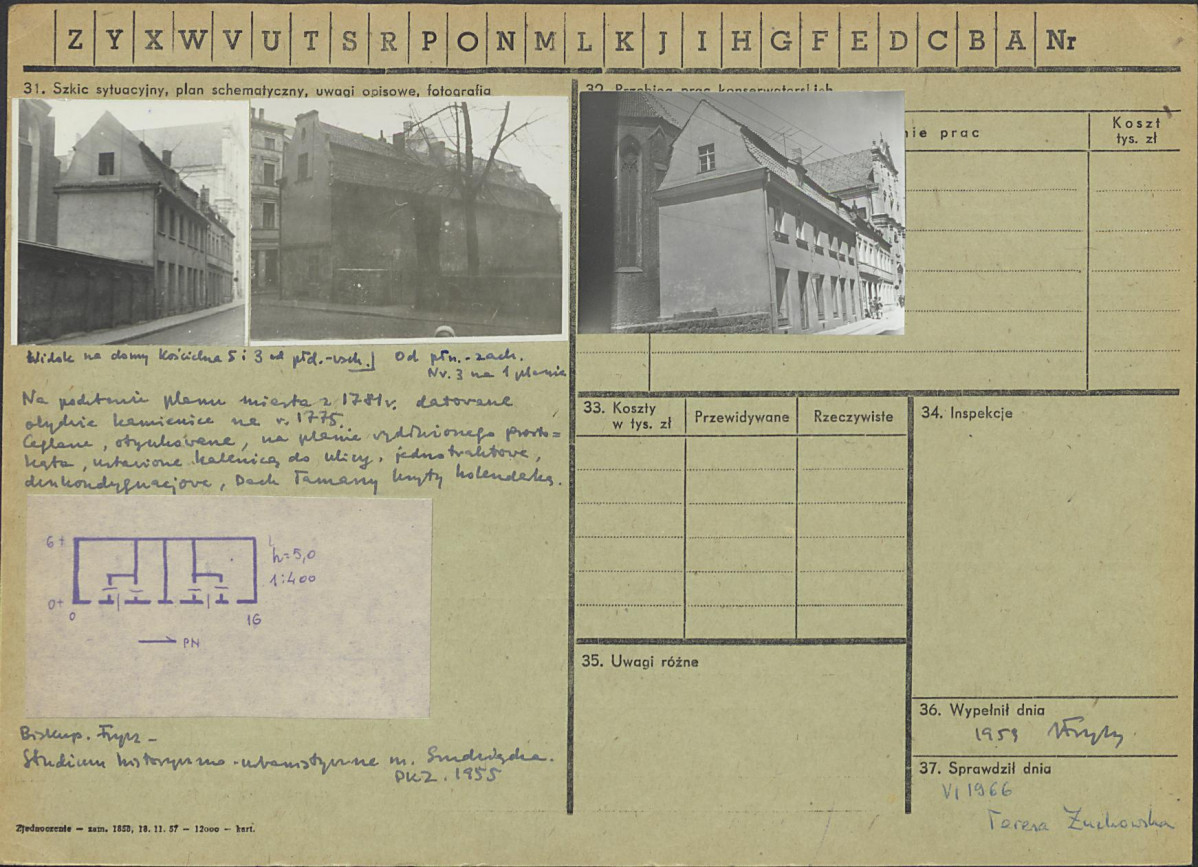 Z Y X W V U T S R P O N M L K J I H G F E D C B A Nr
31. Szkic sytuacyjny, plan schematyczny, uwagi opisowe, fotografia
Widok na domy Kościelna 5 i 3 od płd.-wsch.
Od płn.-zach.
Nr. 3 na 1 planie
Na podstawie planu miasta z 1781 r. datowane
obydwie kamienice na r. 1775.
Ceglane, otynkowane, na planie wydłużonego prosto=
kąta, ustawione kalenicą do ulicy, jednotraktowe,
dwukondygnacjowe, Dach łamany kryty holenderką.
6+
h=5,0
1:400
0+
0
16
PN
Biskup. Fryz –
Studium historyczno-urbanistyczne m. Grudziądza.
PKZ. 1955
Zjednoczenie — zam. 1858, 18. 11. 57 — 12000 — kart.
32. Przebieg prac konserwatorskich
nie prac
Koszt
tys. zł
33. Koszty
w tys. zł
Przewidywane
Rzeczywiste
34. Inspekcje
35. Uwagi różne
36. Wypełnił dnia
1959
37. Sprawdził dnia
VI 1966
Teresa Żuchowska